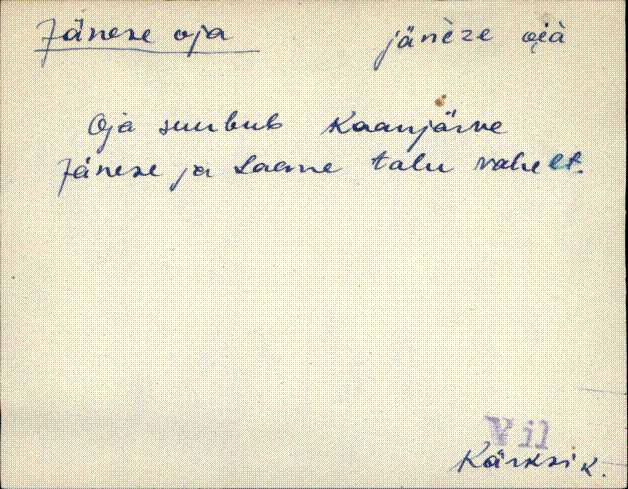 Jänese oja jänèze ojà
Oja suubub Kaanjärve
Jänese ja Laane talu vahelt.
Vil
Kärksi k.